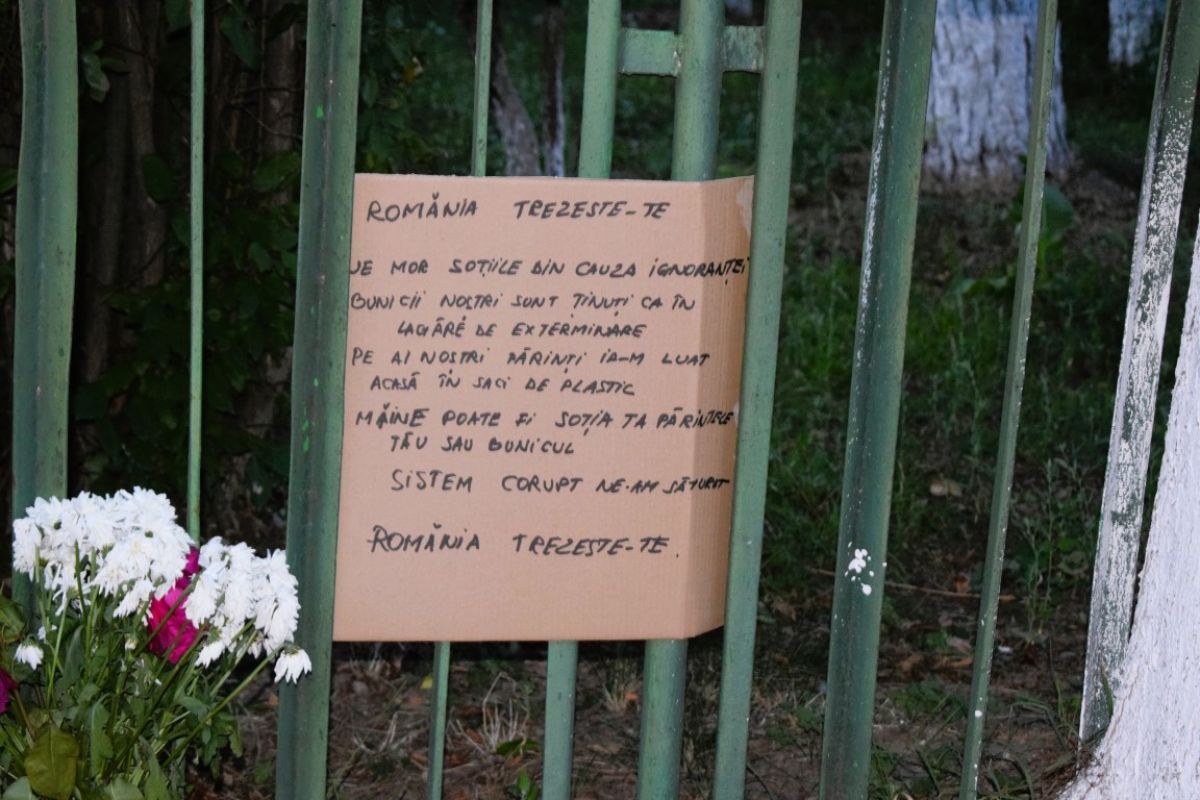 ROMÂNIA TREZESTE-TE
NE MOR SOȚIILE DIN CAUZA IGNORANȚEI
BUNICII NOSTRI SUNT ȚINUȚI CA ÎN
LAGĂRE DE EXTERMINARE
PE AI NOSTRI PĂRINȚI IA-M LUAT
ACASĂ ÎN SACI DE PLASTIC
MÂINE POATE FI SOȚIA TA PĂRINTELE
TĂU SAU BUNICUL
SISTEM CORUPT NE-AM SĂTURAT
ROMÂNIA TREZESTE-TE.